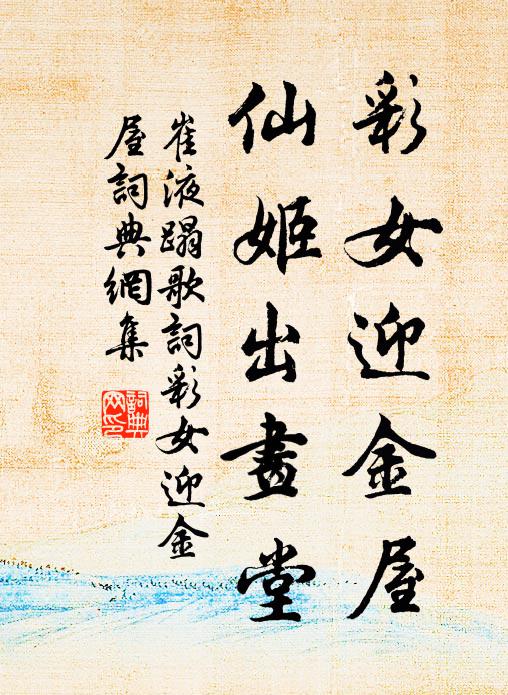 彩女迎金屋
仙姬出畫堂
崔液蹋歌詞彩女迎金
屋詞典網集
詞典網印